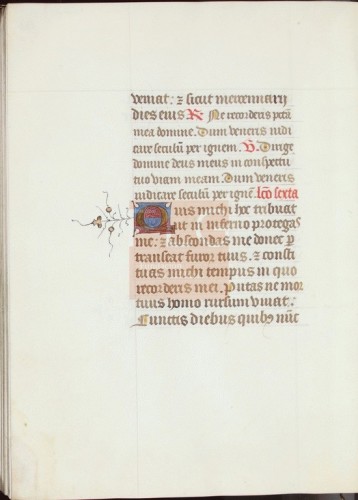 veniat: ⁊ sicut mercennarij
dies eius ℟ Ne recorderis pctā
mea domine. Dum veneris iudi
care seculū per ignem. ℣ Dirige
domine deus meus in conspectu
tuo viam meam. Dum veneris
iudicare seculū per ignē. lcō sexta
Quis michi hoc tribuat
ut in inferno protegas
me: ⁊ abscondas me donec p
transeat furor tuus. ⁊ consti
tuas michi tempus in quo
recorderis mei. Putas ne mor
tuus homo rursum vivat:
Cunctis diebus quibꝫ nūc